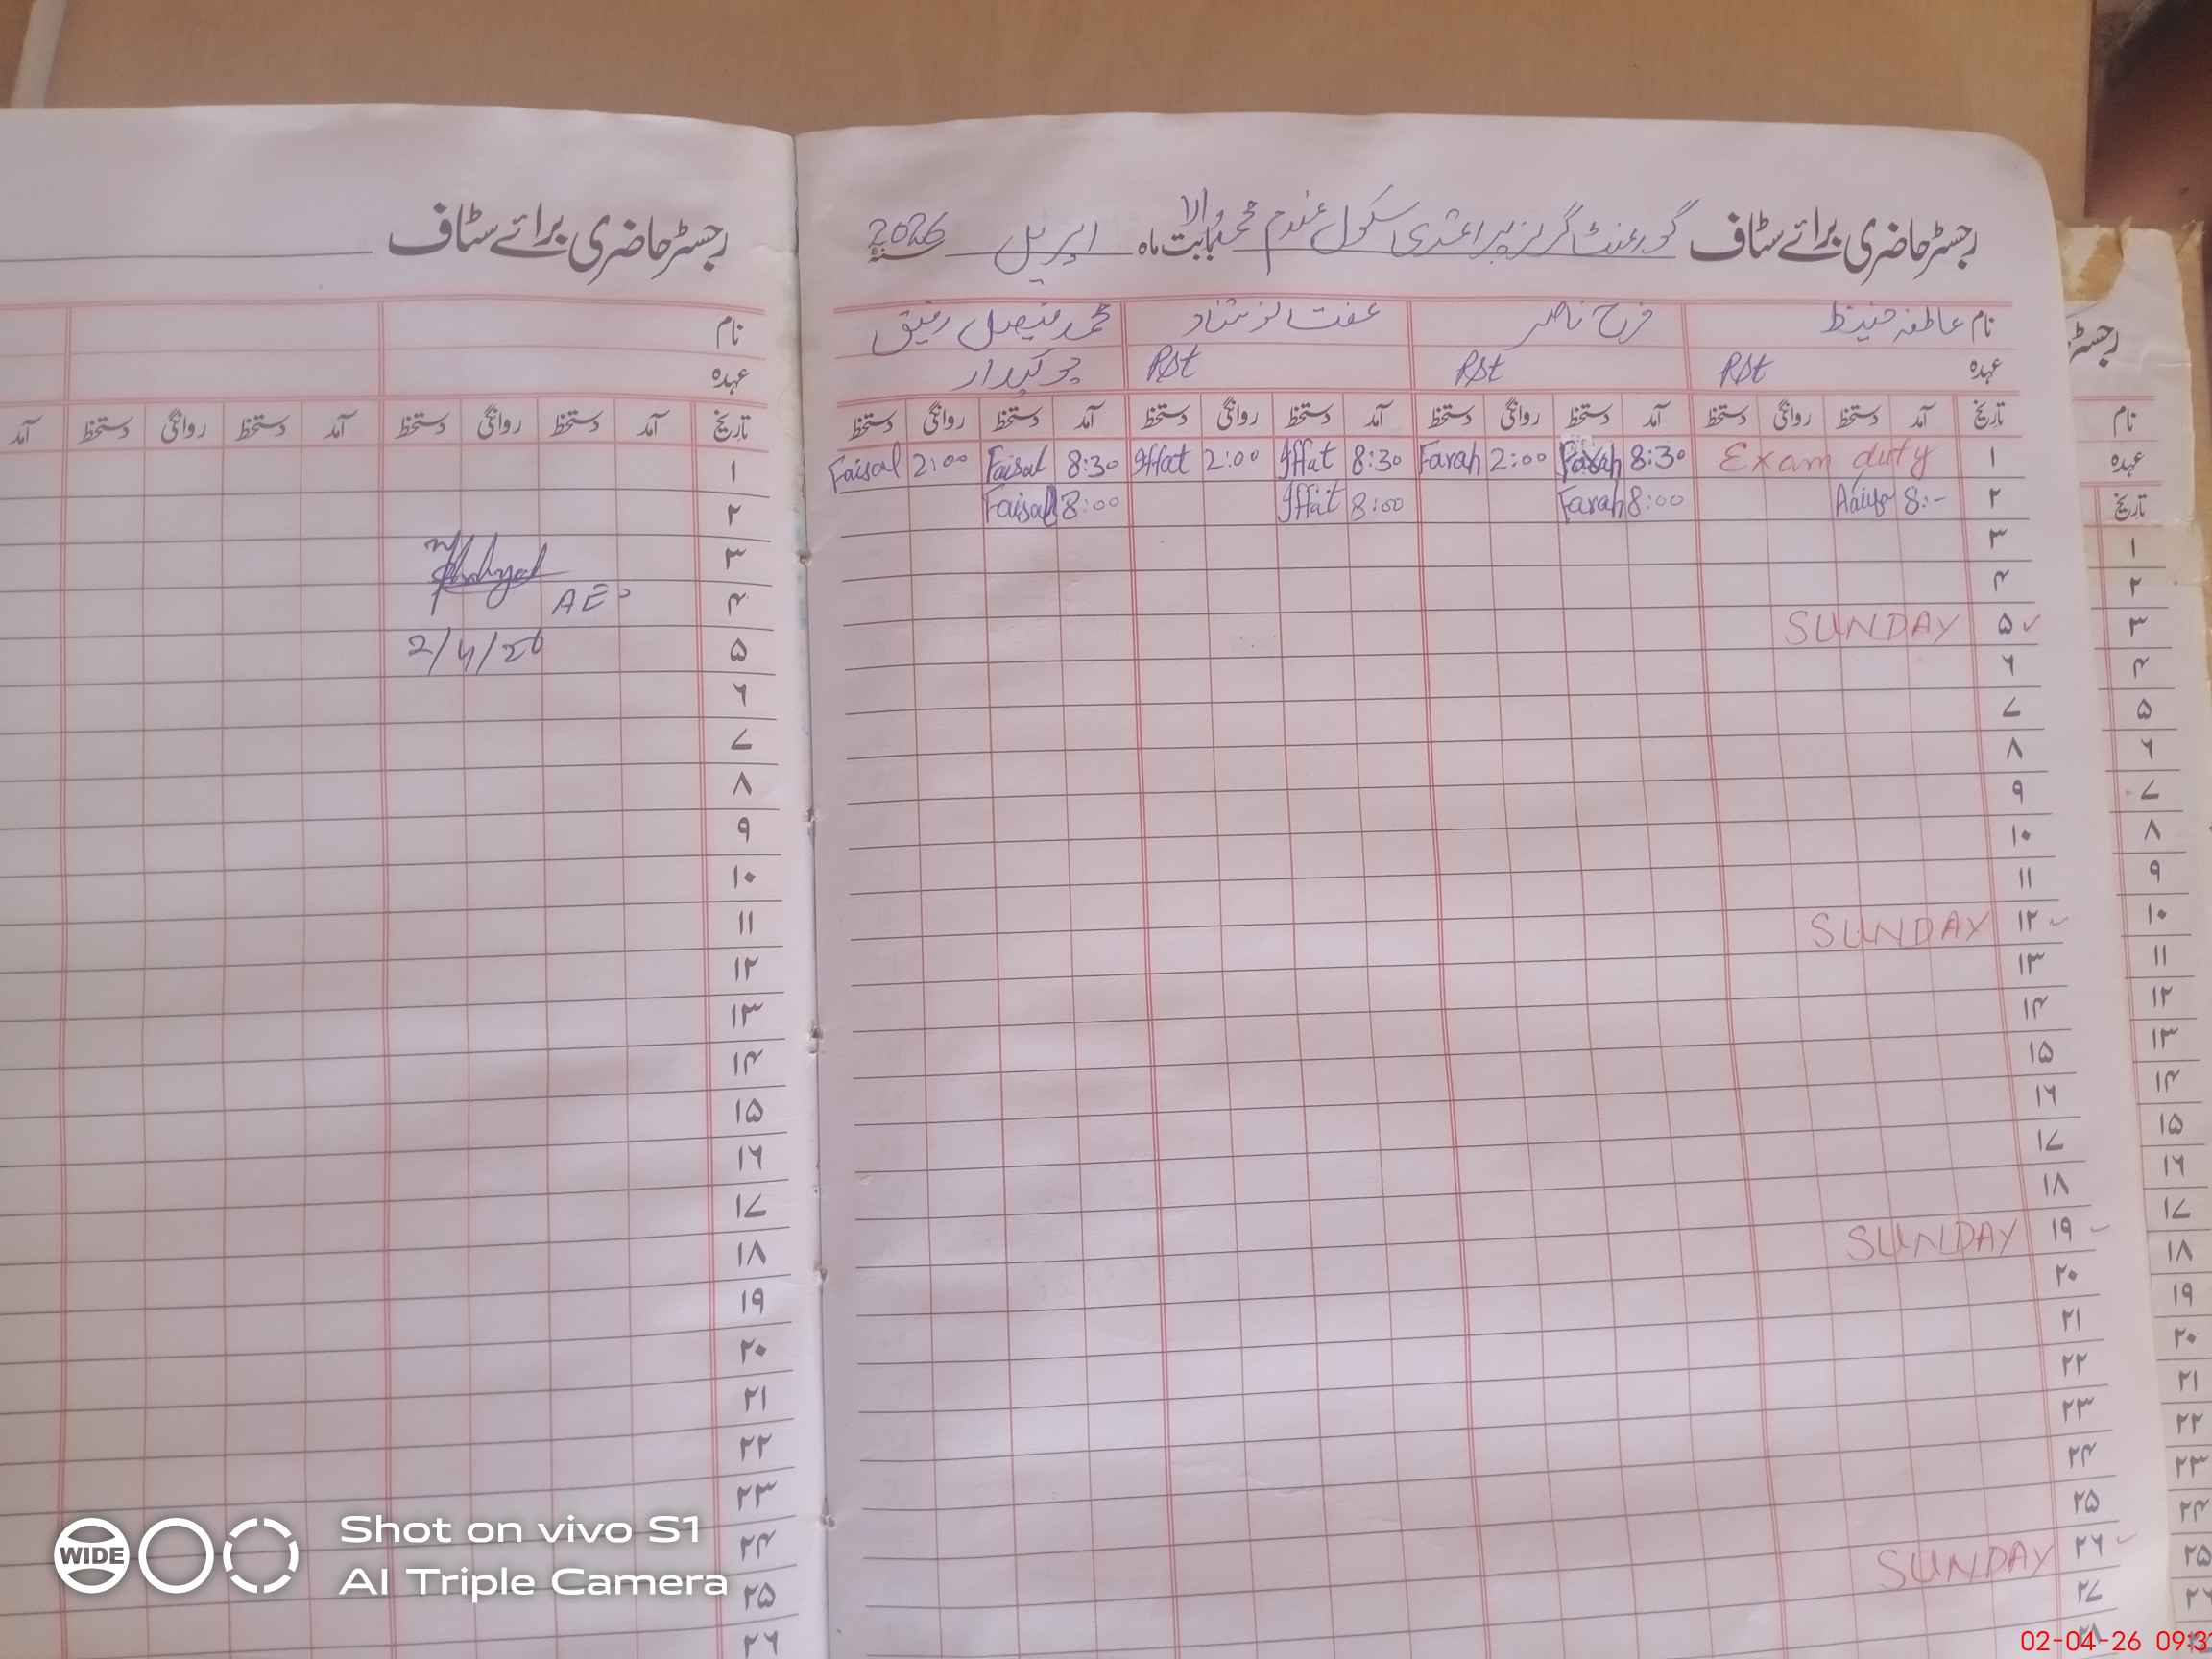 رجسٹر حاضری برائے سٹاف گورنمنٹ گرلز پرائمری سکول مخدوم محمد والا بابت ماہ اپریل سنہ 2026
نام عاطفہ حفیظ فرح ناصر عفت نوشاد محمد فیصل رفیق
عہدہ PSt PSt PSt چوکیدار
تاریخ آمد دستخط روانگی دستخط آمد دستخط روانگی دستخط آمد دستخط روانگی دستخط آمد دستخط روانگی دستخط
۱ Exam duty 8:30 Farah 2:00 Farah 8:30 Iffat 2:00 Iffat 8:30 Faisal 2:00 Faisal
۲ 8:- 8:00 Farah 8:00 Iffat 8:00 Faisal
۳
۴
۵ SUNDAY
۶
۷
۸
۹
۱۰
۱۱
۱۲ SUNDAY
۱۳
۱۴
۱۵
۱۶
۱۷
۱۸
۱۹ SUNDAY
۲۰
۲۱
۲۲
۲۳
۲۴
۲۵
۲۶ SUNDAY
۲۷
۲۸
رجسٹر حاضری برائے سٹاف
نام
عہدہ
تاریخ آمد دستخط روانگی دستخط آمد دستخط روانگی دستخط آمد
۱
۲
۳
۴ AEO
۵ 2/4/26
۶
۷
۸
۹
۱۰
۱۱
۱۲
۱۳
۱۴
۱۵
۱۶
۱۷
۱۸
۱۹
۲۰
۲۱
۲۲
۲۳
۲۴
۲۵
۲۶
رجسٹر
نام
عہدہ
تاریخ
۱
۲
۳
۴
۵
۶
۷
۸
۹
۱۰
۱۱
۱۲
۱۳
۱۴
۱۵
۱۶
۱۷
۱۸
۱۹
۲۰
۲۱
۲۲
۲۳
۲۴
۲۵
۲۶
WIDE
Shot on vivo S1
AI Triple Camera
02-04-26 09:3